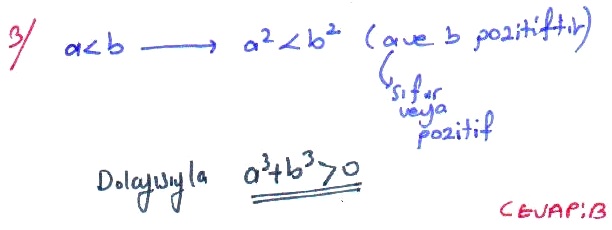 3/ a<b → a² < b² (a ve b pozitiftir)
sıfır
veya
pozitif
Dolayısıyla a³+b³>0
CEVAP:B